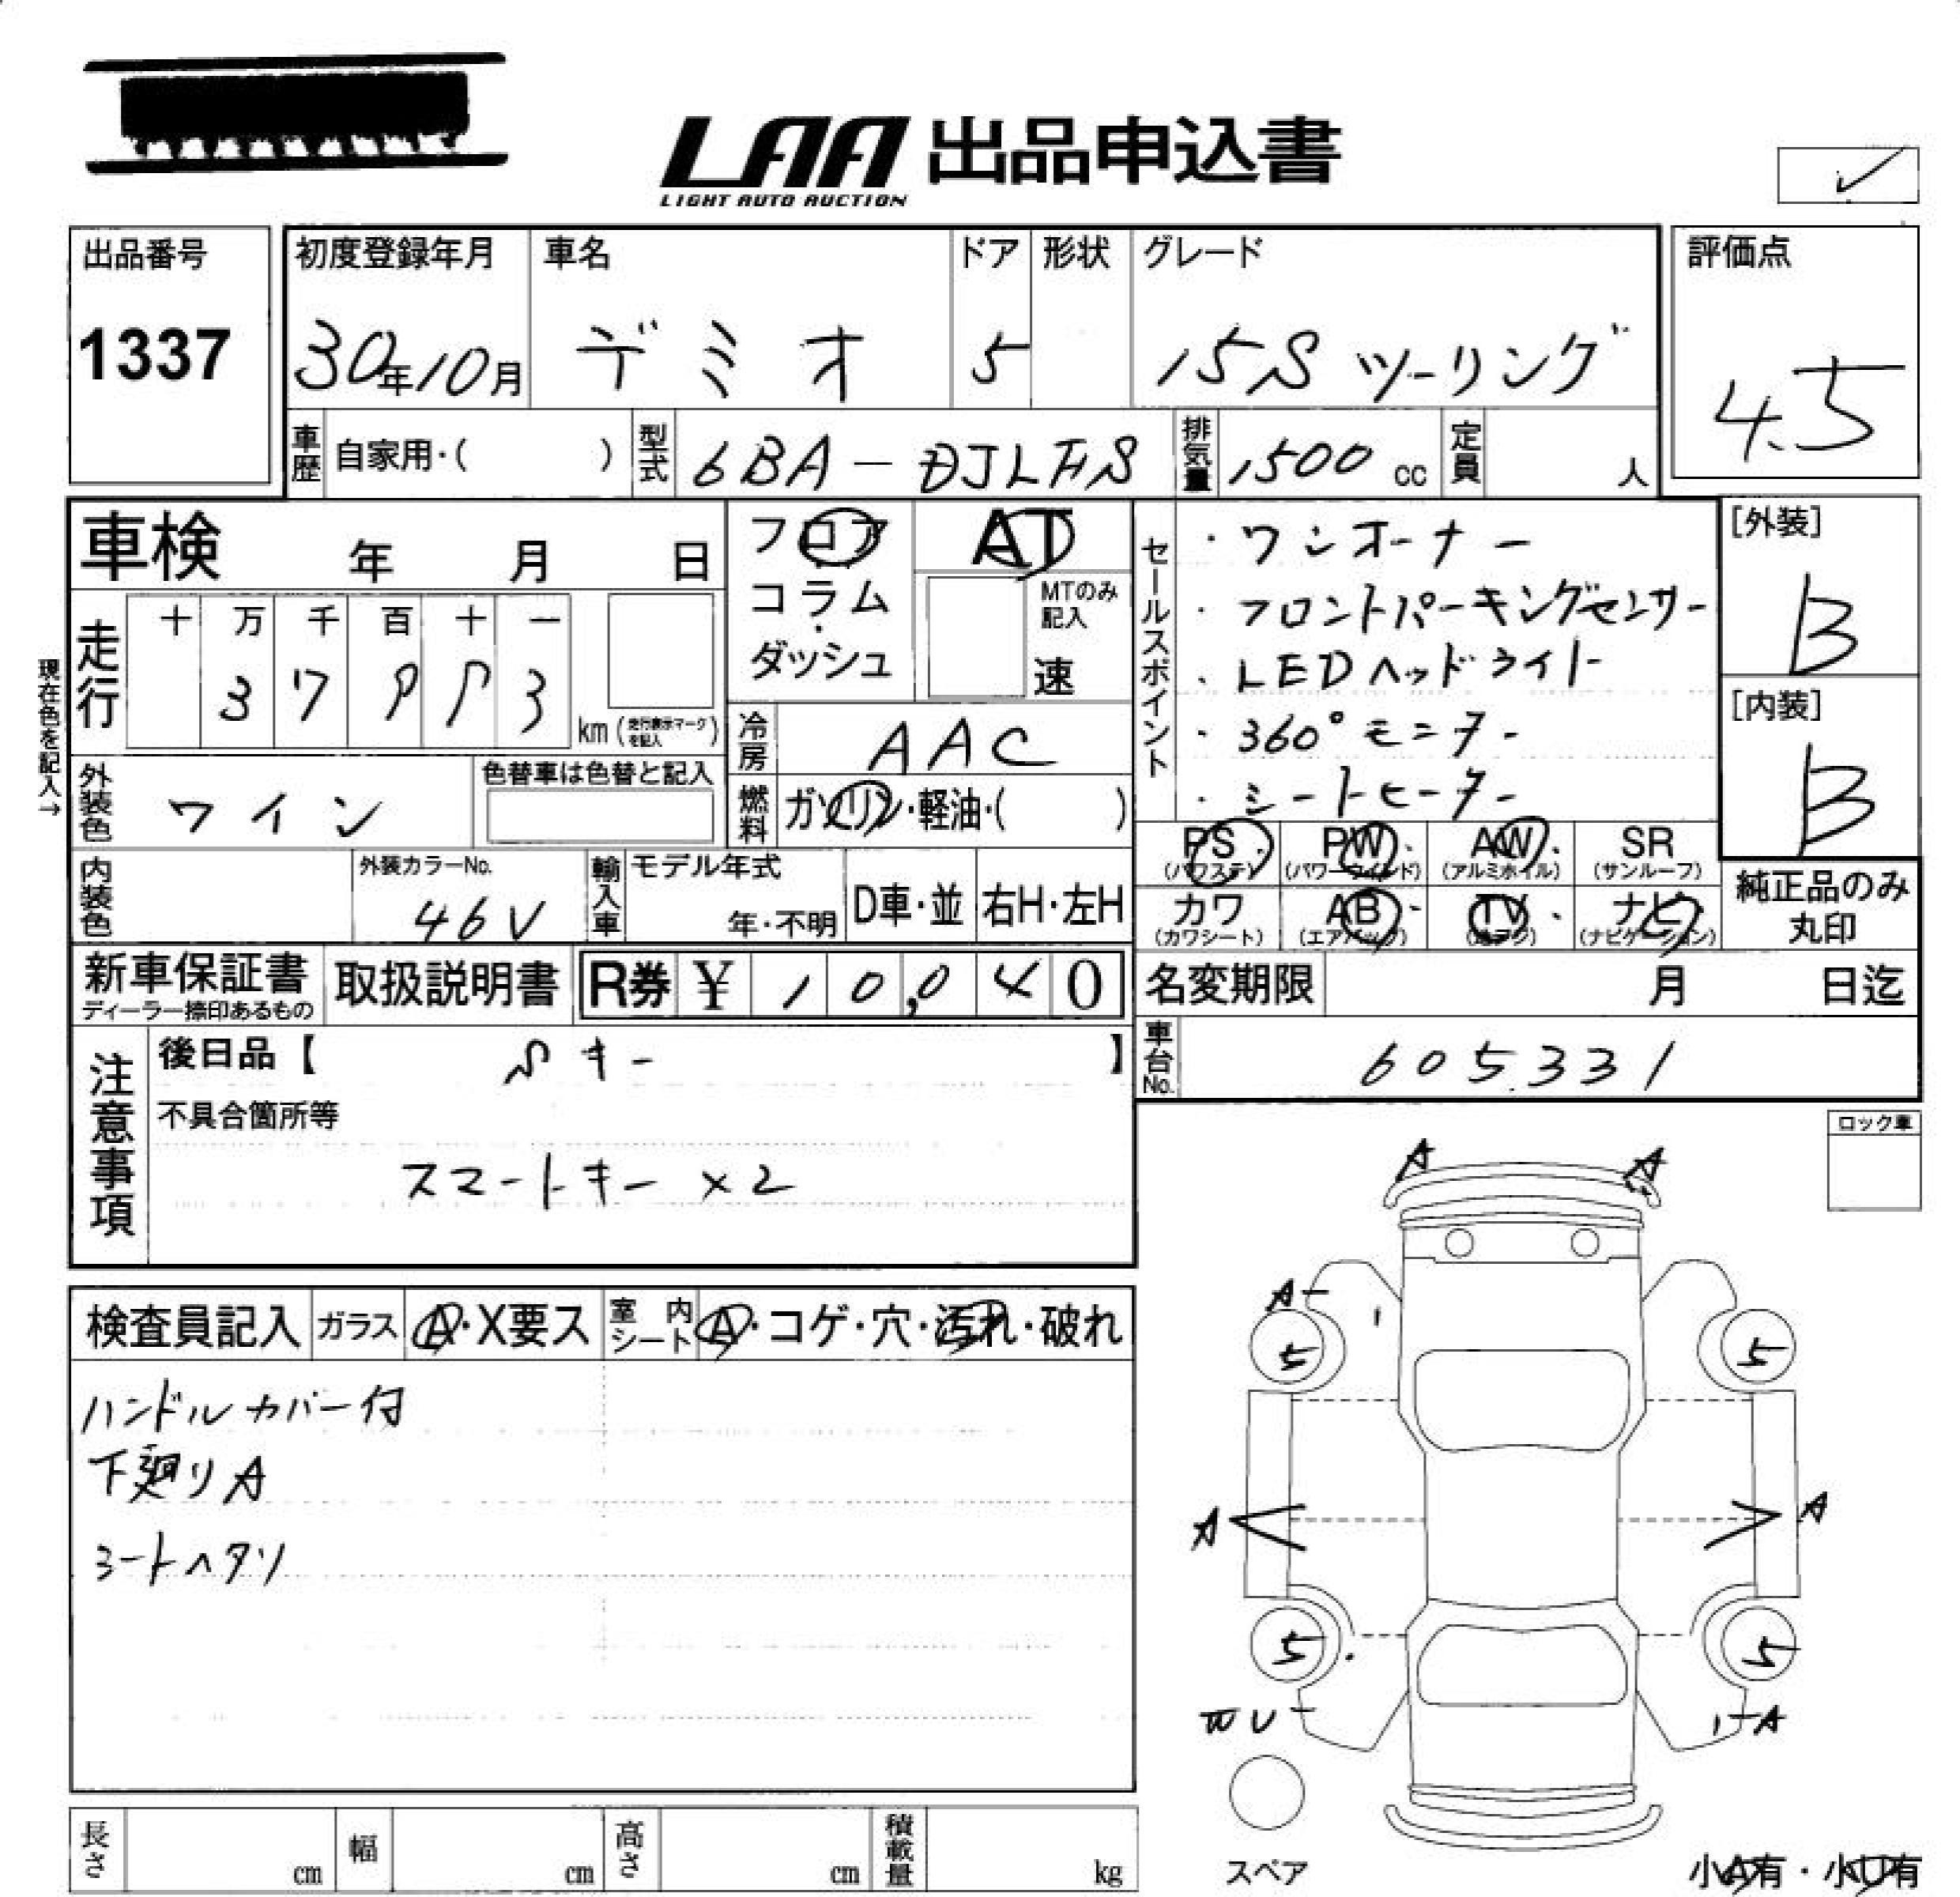 LAA 出品申込書
LIGHT AUTO AUCTION
✓
出品番号
1337
初度登録年月
30年10月
車名
デミオ
ドア
5
形状
グレード
15S ツーリング
評価点
4.5
車歴 自家用・( )
型式 6BA-DJLFS
排気量 1500 cc
定員 人
車検 年 月 日
フロア
コラム・
ダッシュ
AT
MTのみ
記入
速
セールスポイント
・ワンオーナー
・フロントパーキングセンサー
・LEDヘッドライト
・360°モニター
・シートヒーター
[外装]
B
[内装]
B
現在色を記入→
走行
十 万 千 百 十 一
3 7 9 5 3
km(走行表示マークを記入)
冷房 AAC
燃料 ガソリン・軽油・( )
外装色 ワイン
色替車は色替と記入
内装色
外装カラーNo.
46V
輸入車
モデル年式
年・不明
D車・並
右H・左H
PS・
(パワステ)
PW・
(パワーウィンド)
AW・
(アルミホイル)
SR
(サンルーフ)
カワ
(カワシート)
AB・
(エアバック)
TV・
(地デジ)
ナビ・
(ナビゲーション)
純正品のみ
丸印
新車保証書
ディーラー捺印あるもの
取扱説明書
R券 ¥ 10,040
名変期限 月 日迄
車台No. 605331
注意事項
後日品【 Sキー 】
不具合箇所等
スマートキー ×2
ロック車
検査員記入
ガラス A・X要ス
室内シート A・コゲ・穴・汚れ・破れ
ハンドルカバー付
下廻りA
シートヘタリ
A A
A
5 5
A A
5 5
U A
スペア
長さ cm
幅 cm
高さ cm
積載量 kg
小A有・小U有